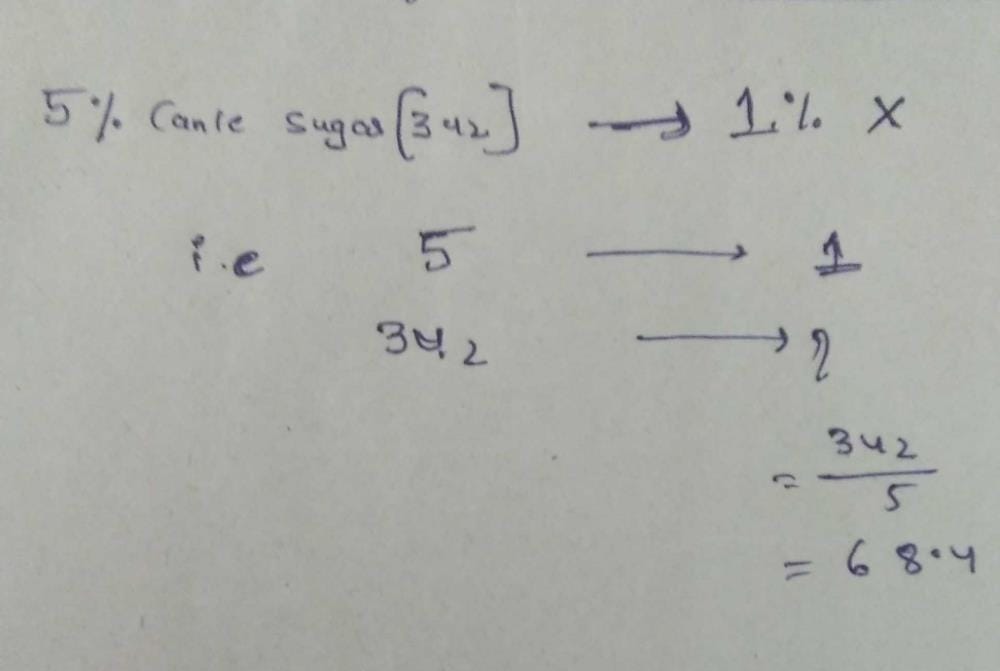 5% Cane sugar [342] → 1% X
i.e 5 → 1
342 → ?
= 342/5
= 68.4